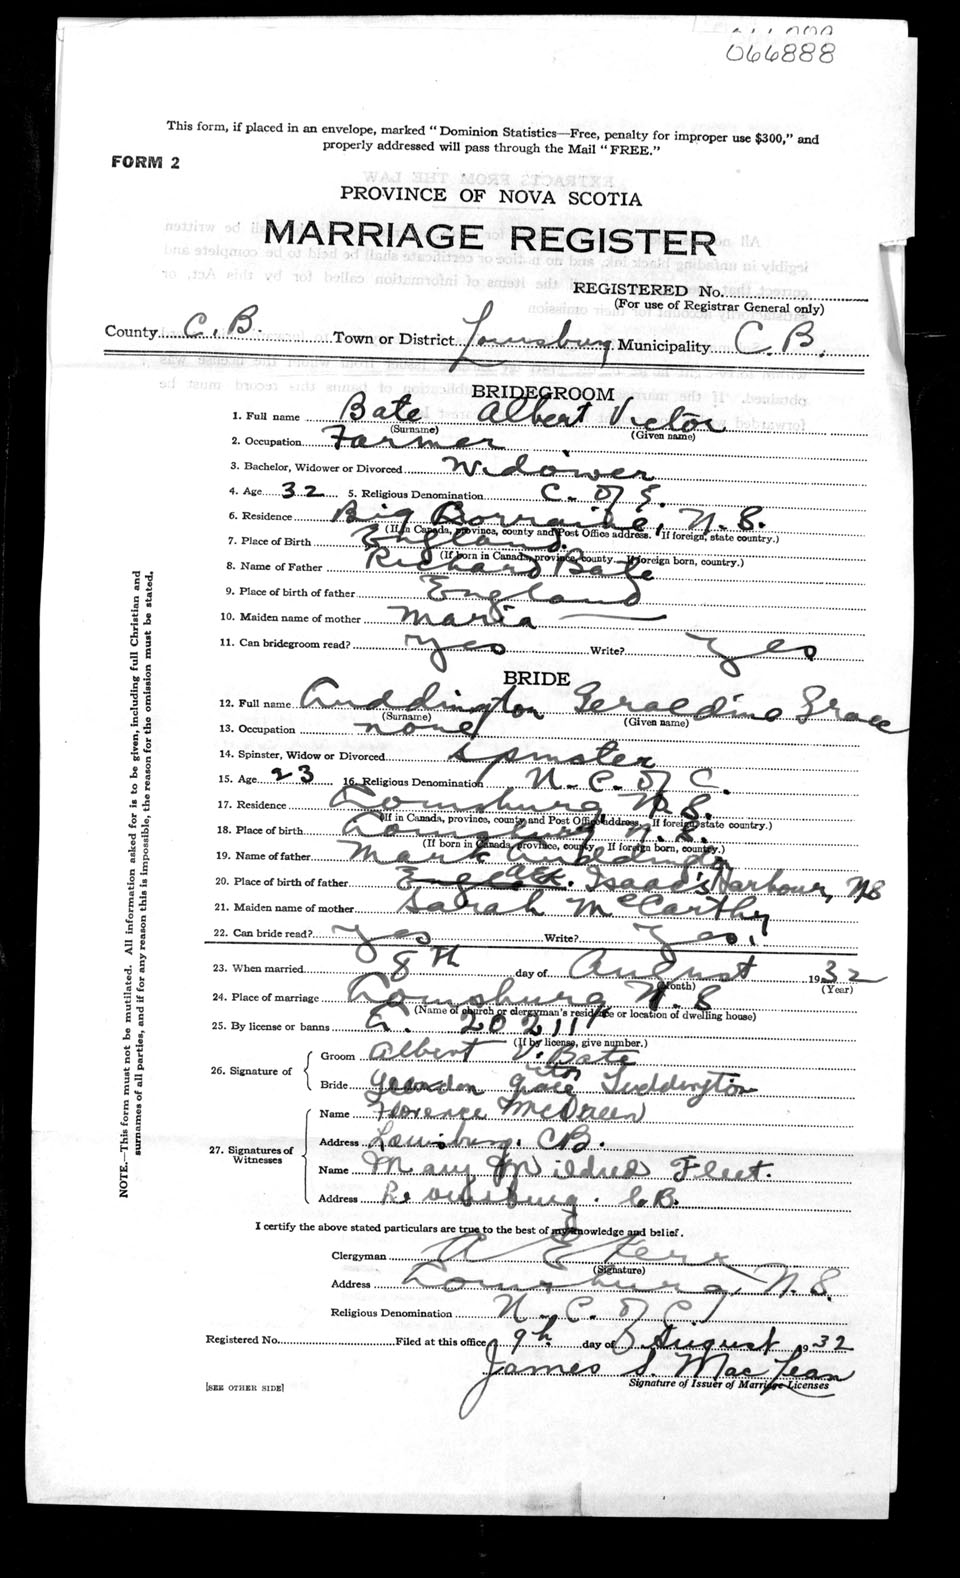 066888
This form, if placed in an envelope, marked "Dominion Statistics—Free, penalty for improper use $300," and
properly addressed will pass through the Mail "FREE."
FORM 2
PROVINCE OF NOVA SCOTIA
MARRIAGE REGISTER
REGISTERED No.
(For use of Registrar General only)
County C. B. Town or District Louisburg Municipality C. B.
BRIDEGROOM
1. Full name Bate Albert Victor
(Surname) (Given name)
2. Occupation Farmer
3. Bachelor, Widower or Divorced Widower
4. Age 32 5. Religious Denomination C. of E.
6. Residence Big Lorraine, N. S.
(If in Canada, province, county and Post Office address. If foreign, state country.)
7. Place of Birth England.
(If born in Canada, province, county. If foreign born, country.)
8. Name of Father Richard Bate
9. Place of birth of father England
10. Maiden name of mother Maria —
11. Can bridegroom read? Yes Write? Yes
BRIDE
12. Full name Luddington Geraldine Grace
(Surname) (Given name)
13. Occupation none
14. Spinster, Widow or Divorced Spinster
15. Age 23 16. Religious Denomination U. C. of C.
17. Residence Louisburg N. S.
(If in Canada, province, county and Post Office address. If foreign, state country.)
18. Place of birth Louisburg N. S.
(If born in Canada, province, county. If foreign born, country.)
19. Name of father Mark Luddington
20. Place of birth of father Isaac's Harbour, NS
21. Maiden name of mother Sarah McCarthy
22. Can bride read? Yes Write? Yes.
23. When married 8th day of August 1932
(Month) (Year)
24. Place of marriage Louisburg N. S
(Name of church or clergyman's residence or location of dwelling house)
25. By license or banns L. 20211
(If by license, give number.)
26. Signature of
Groom Albert Victor Bate
Bride Grace Luddington
27. Signatures of
Witnesses
Name Florence
Address Louisburg. CB.
Name Mary Mildred Fleet.
Address Louisburg. C. B.
I certify the above stated particulars are true to the best of my knowledge and belief.
Clergyman A E Kerr
(Signature)
Address Louisburg, N. S.
Religious Denomination U. C. of C
Registered No. Filed at this office 9th day of August 1932
James S. MacLean
Signature of Issuer of Marriage Licenses
[SEE OTHER SIDE]
NOTE.—This form must not be mutilated. All information asked for is to be given, including full Christian and
surnames of all parties, and if for any reason this is impossible, the reason for the omission must be stated.